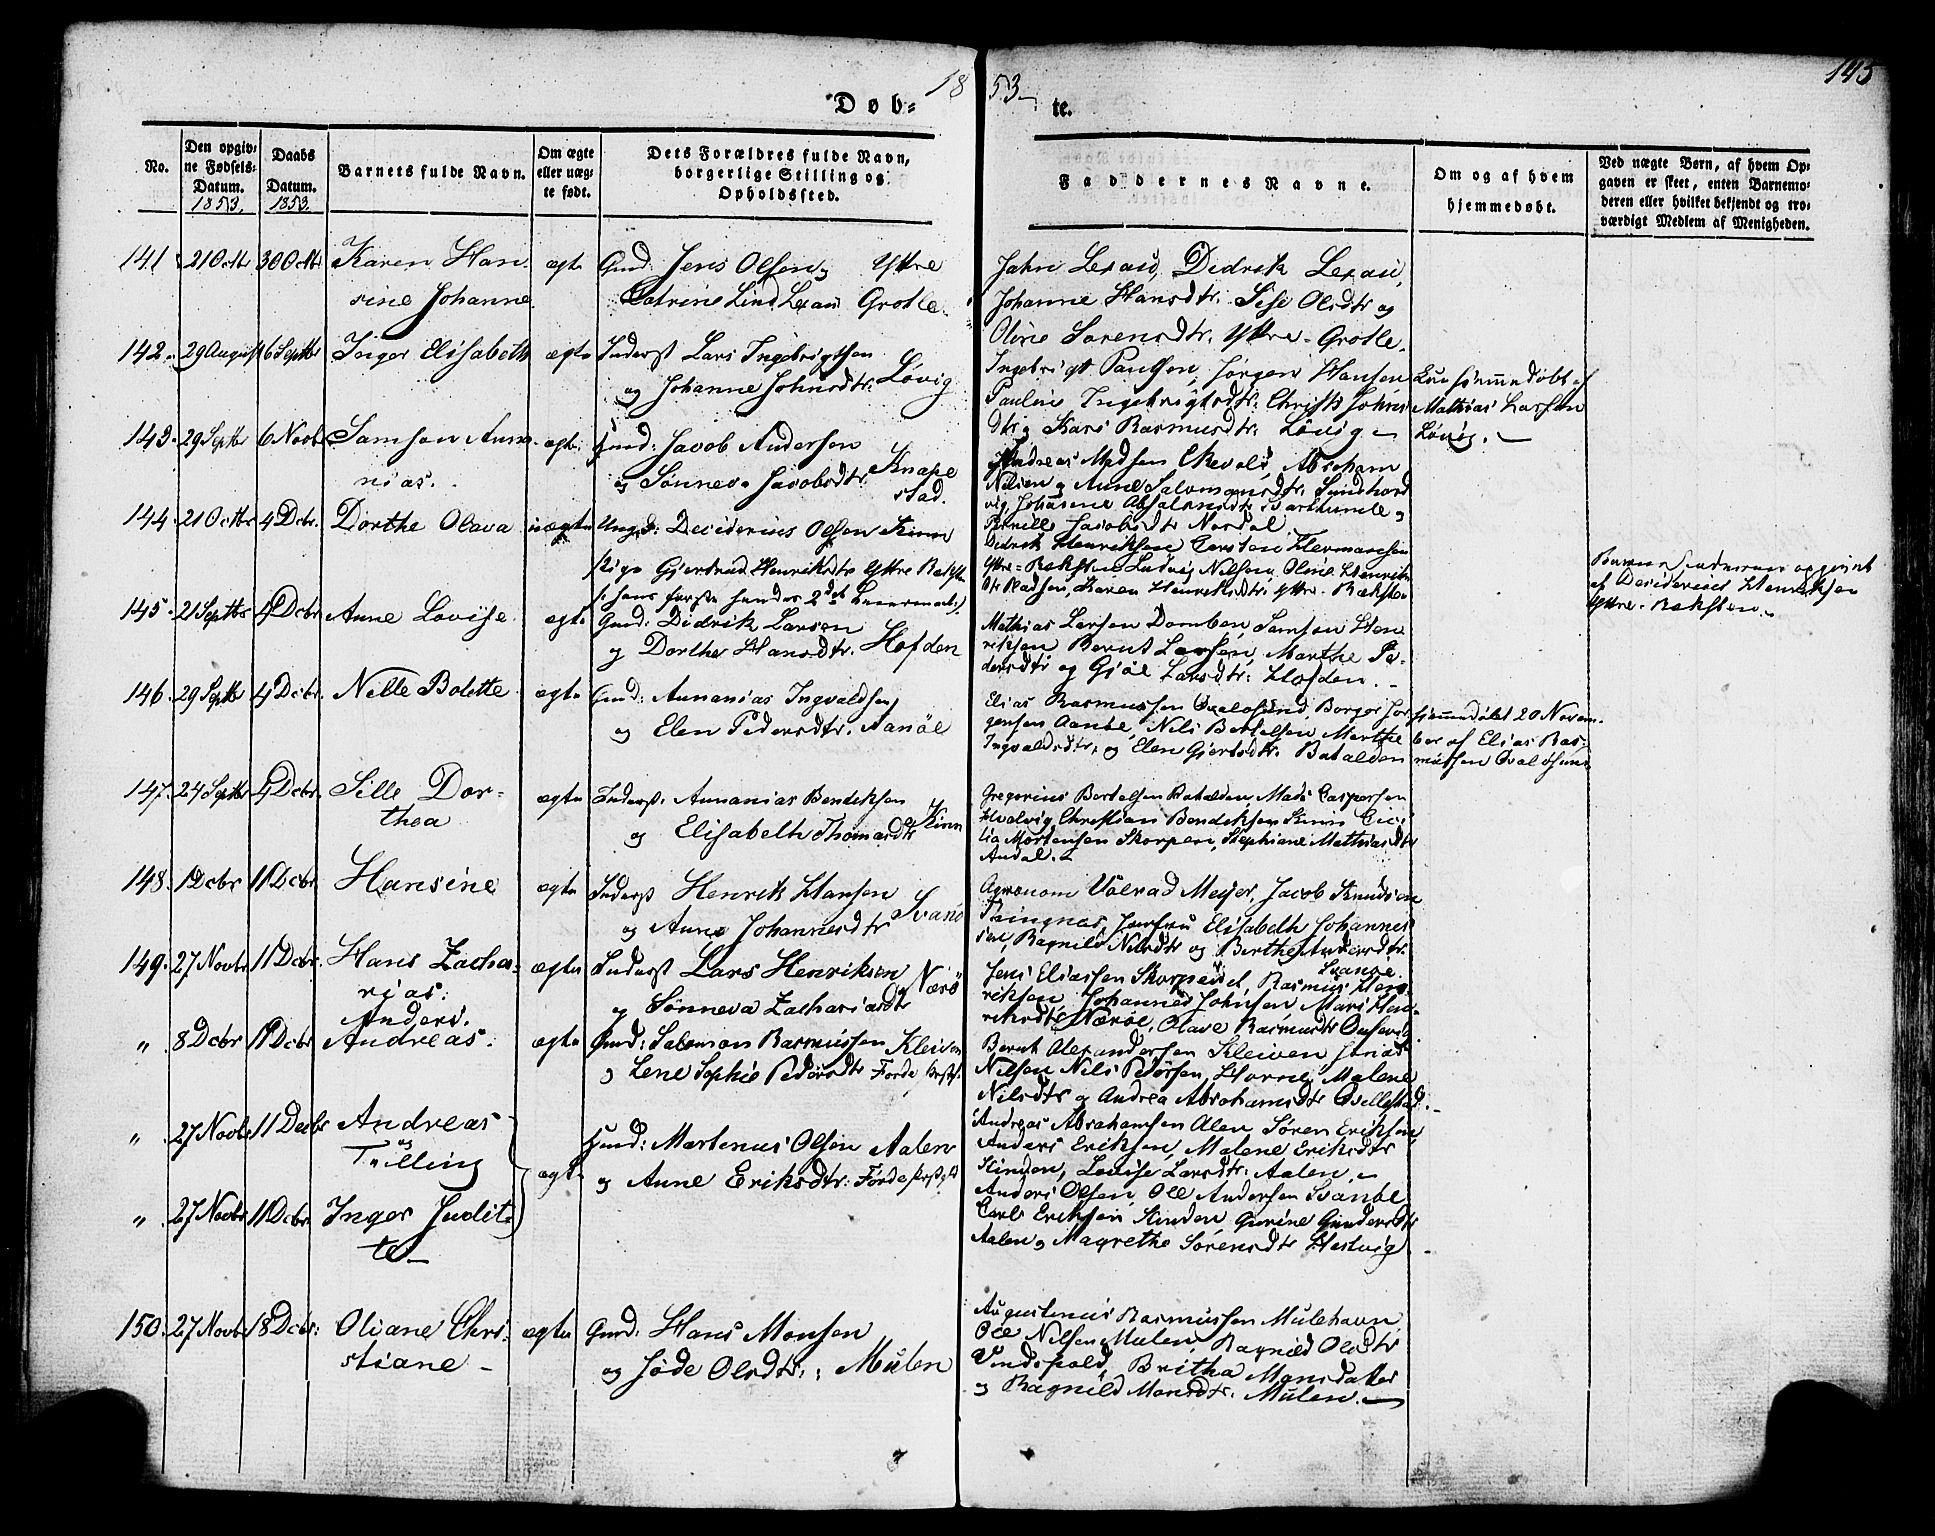 1853
145
Døbte.
No.
Den opgivne Fødsels-Datum. 1853.
Daabs Datum. 1853.
Barnets fulde Navn.
Om ægte eller uægte født.
Dets Forældres fulde Navn, borgerlige Stilling og Opholdssted.
Faddernes Navne.
Om og af hvem hjemmedøbt.
Ved uægte Børn, af hvem Opgaven er skeet, enten Barnemoderen eller hvilket bekjendt og troværdigt Medlem af Menigheden.
141 21 Octbr 30 Octbr Karen Han-
sine Johanne
ægte
Gmd: Jens Olsen og Yttre
Catrine Lind Lexau Grotle.
John Lexau, Didrik Lexau,
Johanne Hansdtr. Sise Olsdtr og
Oline Sørensdtr. Yttre-Grotle.
142. 29 August 6 Septbr Inger Elisabeth
ægte
Inderst Lars Ingebrigtsen
og Johanne Johnsdtr. Løvig
Ingebrigt Paulsen, Jørgen Hansen
Pauline Ingebrigtsdtr. Christi Johns
dtr og Kari Rasmusdtr. Løvig
hjemmedøbt af
Mathias Larsen
Løvig.
143. 29 Septbr 6 Novbr Samson Anna-
nias.
ægte
Gmd: Jacob Andersen
og Sønneva Jacobsdtr. Knape
stad.
Andreas Madsen Abraham
Nilsen og Anne Salomonsdtr. Indhord
vig Johanne Absalonsdtr. Svarthumle og
Pernille Jacobsdtr Nordal
144. 21 Octbr 4 Dcbr. Dorthe Olava
uægte
Ungk: Deciderius Olsen Kinn
Pige Gjertrud Henriksdtr Yttre Reksten
(: hans første hendes 2det Leiermaal:)
Didrik Henriksen Carsten Hermansen
Yttre-Reksten Ludvig Nilsen, Oline Henriks
dtr Karen Henriksdtr. Yttre-Reksten
opgivet
af Desiderius Henriksen
Yttre-Reksten.
145. 21 Septbr 4 Dcbr Anne Lovise
ægte
Gmd: Didrik Larsen
og Dorthe Hansdtr. Hofden
Mathias Larsen Domben, Samson Hen
riksen Bernt Larsen, Marthe Pe-
dersdtr og Gjøe Larsdtr: Hofden.
146. 29 Septbr 4 Dcbr. Nelle Bolette
ægte
Gmd: Annanias Ingvaldsen
og Elen Pedersdtr. Aanøe
Elias Rasmussen Qvaløsund, Borger Jør
gensen Aanøe, Nils Bertelsen Marthe
Ingvaldsdtr, og Elen Gjertsdtr. Batalden
hjemmedøbt 20 Novem-
ber af Elias Ras-
mussen Qvaløsund
147. 24 Septbr 4 Dcbr. Sille Dor-
thea
ægte
Inderst: Annanias Bendiksen
og Elisabeth Thomasdtr Kinn
Gregorius Bertelsen Batalden, Mads Caspersen
Christian Bendiksen Kinn Ceci-
lia Mortensen Skorpen, Stephiane Mathiasdtr
Andal.
148. 1 Dcbr 11 Dcbr. Hansine
ægte
Inderst Henrik Hansen
og Anne Johannesdtr Svanø
Agronom Volrad Meyer, Jacob Knudsen
Jomfru Elisabeth Johannes
sen, Ragnild Nilsdtr og Berthe Andersdtr.
Svanøe
149. 27 Novbr 11 Dcbr. Hans Zacha-
rias:
ægte
Inderst Lars Henriksen
og Sønneva Zachariasdtr Nærø
Jens Eliassen Skorpesund, Rasmus Hen-
riksen, Johannes Johnsen, Mari Hen-
riksdtr Nærøe, Olave Rasmusdtr
" 8 Dcbr 11 Dcbr Anders.
Andreas.
ægte
Gmd: Salomon Rasmussen Kleiven
og Lene Sophie Pedersdtr Førde Prstg.
Bernt Alexandersen Kleiven Jonas
Nilsen Nils Pedersen, Horne, Malene
Nilsdtr og Andrea Abrahamsdtr Qvellestad.
" 27 Novbr 11 Decbr Andreas
og
Tvilling
" 27 Novbr 11 Dcbr. Inger Judit-
te
ægte
Gmd: Martenus Olsen Aalen
og Anne Eriksdtr: Førde Prstgd
Andreas Abrahamsen Alen Søren Eriksen
Anders Eriksen, Malene Eriksdtr
Kinden, Lovise Larsdtr: Aalen.
Anders Olsen, Ole Andersen Svanøe
Carl Eriksen Kinden, Gurine Gundersdtr
Aalen og Magrethe Sørensdtr Hestvig
150. 27 Novbr 18 Dcbr: Oliane Chri-
stiane
ægte
Gmd: Hans Monsen
og Jøde Olsdtr.: Mulen
Augustenus Rasmussen Mulehavn,
Ole Nilsen Mulen, Ragnild Olsdtr
Vindspold, Britha Monsdatter
og Ragnild Monsdtr: Mulen.